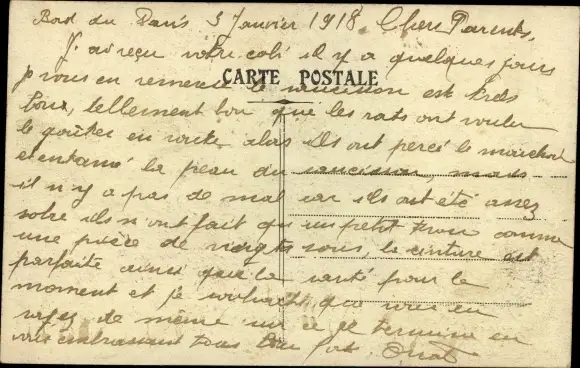 Bord du Paris 3 Janvier 1918. Chers Parents,
J'ai reçu votre coli il y a quelques jours
CARTE POSTALE
je vous en remercie le saucisson est très
bon, tellement bon que les rats ont voulu
le goûter en route alors ils ont percé le
et entamé la peau du saucisson, mais
il n'y a pas de mal car ils ont été assez
sotre ils n'ont fait qu'un petit trou comme
une pièce de vingt sous, la ceinture est
parfaite ainsi que la santé pour le
moment et je souhaite que vous en
soyez de même sur ce je termine en
vous embrassant tous bien fort